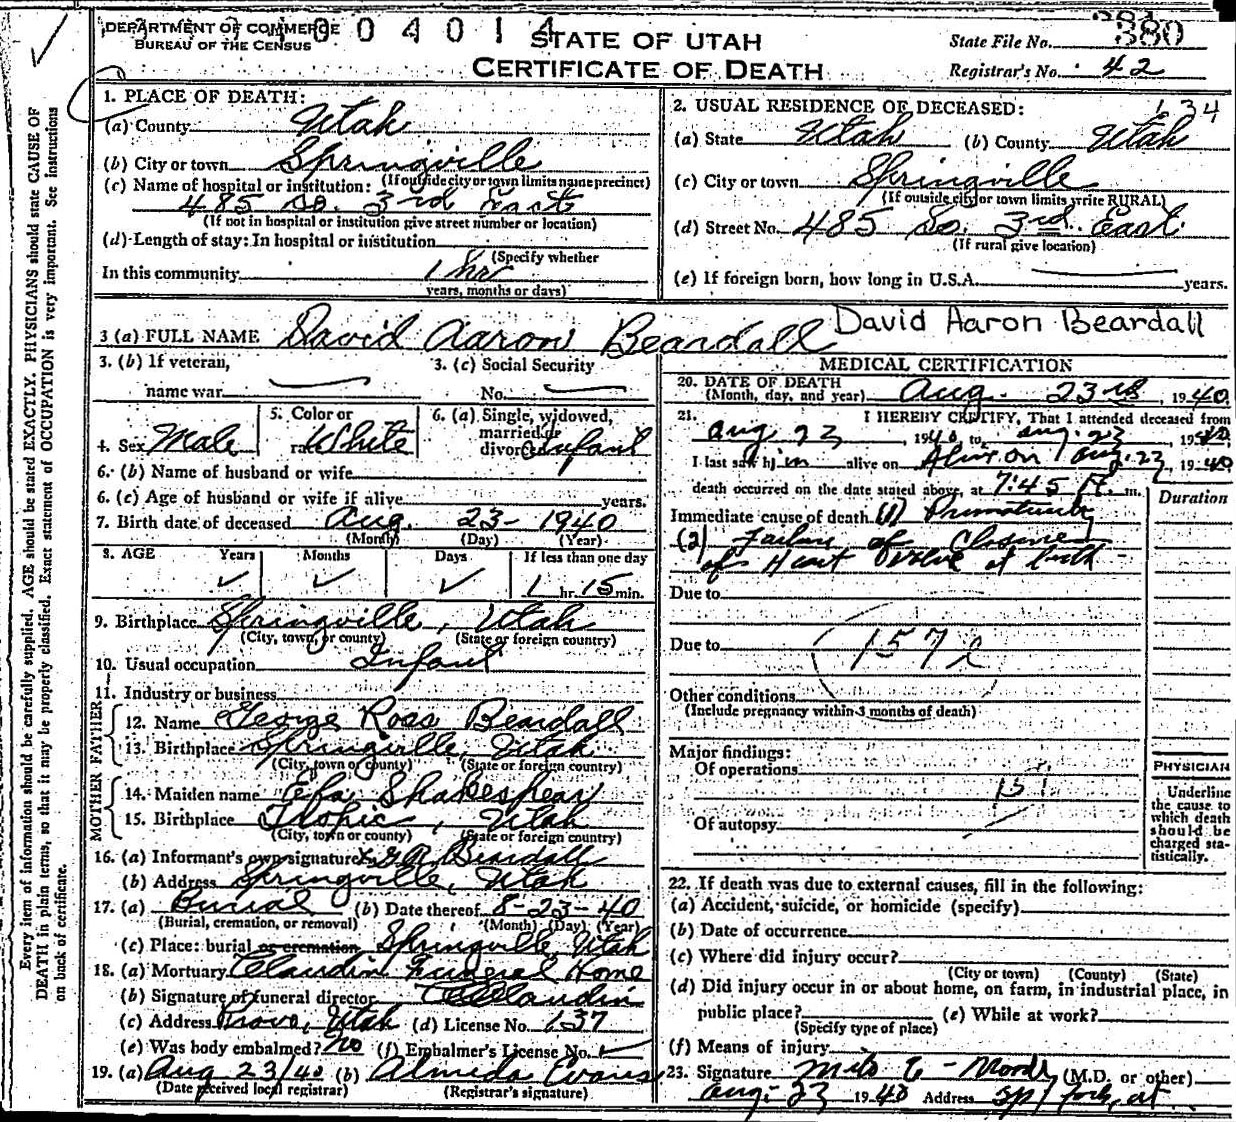 DEPARTMENT OF COMMERCE
BUREAU OF THE CENSUS
04014
STATE OF UTAH
CERTIFICATE OF DEATH
State File No. 380
Registrar's No. 42
Every item of information should be carefully supplied. AGE should be stated EXACTLY. PHYSICIANS should state CAUSE OF
DEATH in plain terms, so that it may be properly classified. Exact statement of OCCUPATION is very important. See instructions
on back of certificate.
1. PLACE OF DEATH:
(a) County Utah
(b) City or town Springville
(If outside city or town limits name precinct)
(c) Name of hospital or institution:
485 So. 3rd East
(If not in hospital or institution give street number or location)
(d) Length of stay: In hospital or institution
(Specify whether
In this community 1 hr
years, months or days)
2. USUAL RESIDENCE OF DECEASED: 134
(a) State Utah (b) County Utah
(c) City or town Springville
(If outside city or town limits write RURAL)
(d) Street No. 485 So. 3rd East
(If rural give location)
(e) If foreign born, how long in U.S.A. years.
3 (a) FULL NAME David Aaron Beardall David Aaron Beardall
3. (b) If veteran,
name war
3. (c) Social Security
No.
4. Sex Male
5. Color or
race White
6. (a) Single, widowed,
married or
divorced Infant
6. (b) Name of husband or wife
6. (c) Age of husband or wife if alive years.
7. Birth date of deceased Aug. 23- 1940
(Month) (Day) (Year)
8. AGE Years Months Days If less than one day
1 hr. 15 min.
9. Birthplace Springville, Utah
(City, town, or county) (State or foreign country)
10. Usual occupation Infant
11. Industry or business
FATHER
12. Name George Ross Beardall
13. Birthplace Springville, Utah
(City, town or county) (State or foreign country)
MOTHER
14. Maiden name Shakespear
15. Birthplace Tropic, Utah
(City, town or county) (State or foreign country)
16. (a) Informant's own signature G R Beardall
(b) Address Springville, Utah
17. (a) Burial (b) Date thereof 8-23-40
(Burial, cremation, or removal) (Month) (Day) (Year)
(c) Place: burial or cremation Springville, Utah
18. (a) Mortuary Claudin Funeral Home
(b) Signature of funeral director Claudin
(c) Address Provo, Utah (d) License No. 137
(e) Was body embalmed? No (f) Embalmer's License No.
19. (a) Aug 23/40 (b) Almeda Evans
(Date received local registrar) (Registrar's signature)
MEDICAL CERTIFICATION
20. DATE OF DEATH
(Month, day, and year) Aug. 23rd, 1940
21. I HEREBY CERTIFY, That I attended deceased from
Aug 23, 1940 to Aug. 23, 1940
I last saw him alive on Alive on Aug. 23, 1940
death occurred on the date stated above, at 7:45 A. m.
Duration
Immediate cause of death (1) Prematurity
(2) Failure of Closure
of Heart Valve at birth
Due to
Due to 157
Other conditions
(Include pregnancy within 3 months of death)
Major findings:
Of operations
Of autopsy
PHYSICIAN
Underline
the cause to
which death
should be
charged sta-
tistically.
22. If death was due to external causes, fill in the following:
(a) Accident, suicide, or homicide (specify)
(b) Date of occurrence
(c) Where did injury occur?
(City or town) (County) (State)
(d) Did injury occur in or about home, on farm, in industrial place, in
public place? (e) While at work?
(Specify type of place)
(f) Means of injury
23. Signature Milo C Moody (M.D. or other)
Aug. 23 1940 Address Sp. Fork, Ut